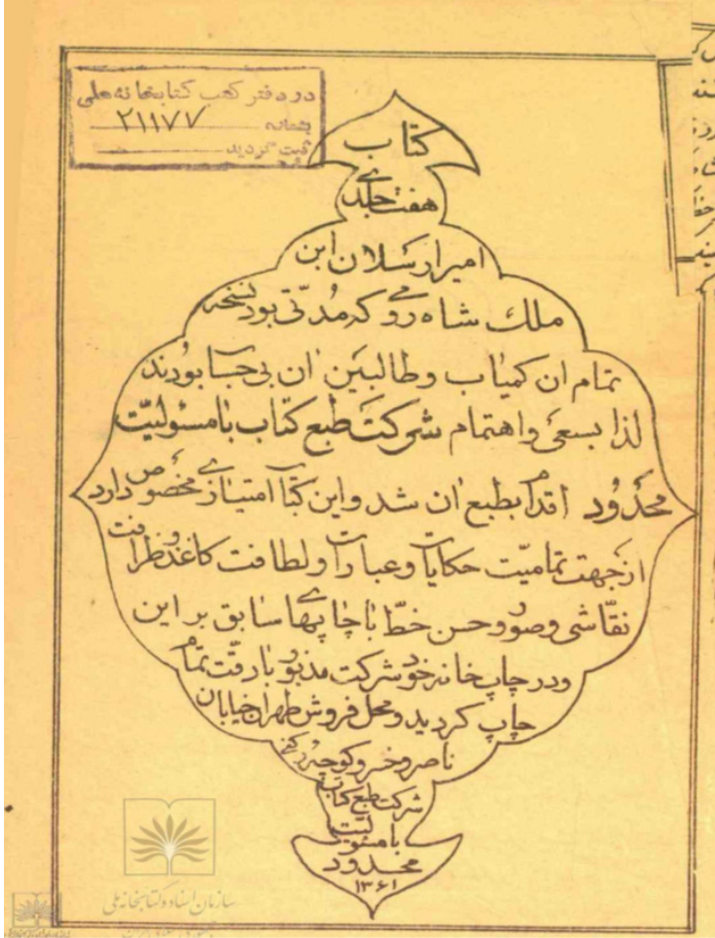 در دفتر کتب کتابخانه ملی
بشماره ۲۱۱۷۷
ثبت گردید
کتاب
هفت جلدی
امیر ارسلان ابن
ملک شاه رومی که مدّتی بود نسخه
تمام ان کمیاب و طالبین ان بی حساب بودند
لذا بسعی و اهتمام شرکت طبع کتاب با مسئولیّت
محدود اقدام بطبع ان شد و این کتاب امتیازی مخصوص دارد
از جهت تمامیّت حکایات و عبارات و لطافت کاغذ و ظرافت
نقّاشی و صور و حسن خطّ با چاپهای سابق بر این
و در چاپ خانه خود شرکت مذبور با دقّت تمام
چاپ کردید و محل فروش طهران خیابان
ناصر و خسرو کوچه
شرکت طبع کتاب
با مسئولیّت
محدود
۱۳۶۱
سازمان اسناد و کتابخانه ملی